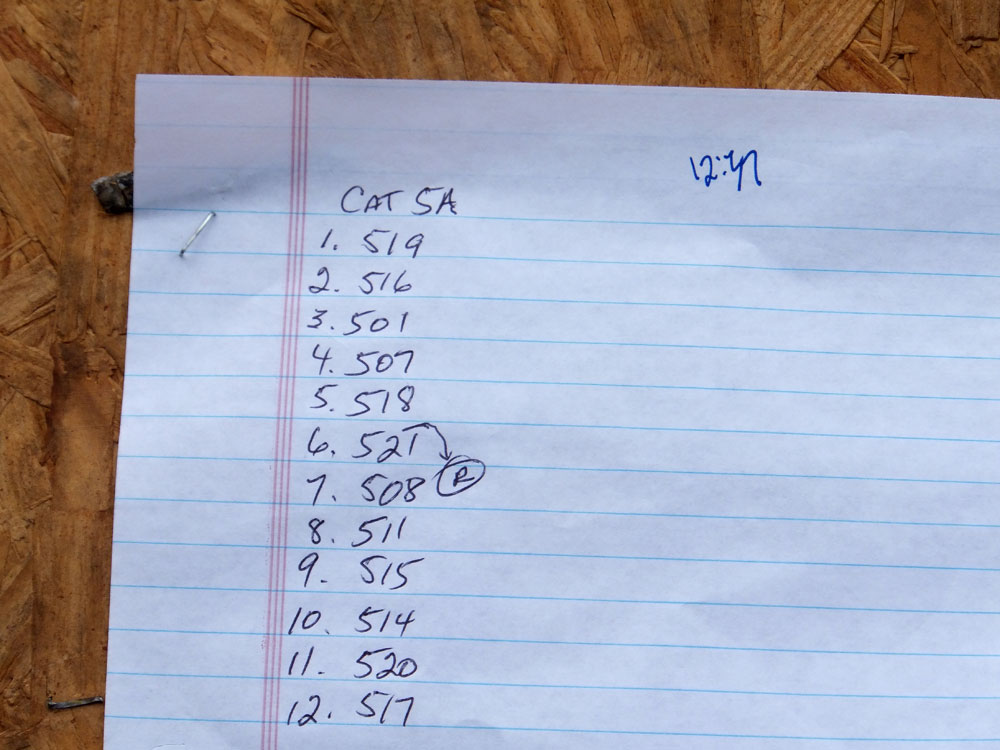 12:47
CAT 5A
1. 519
2. 516
3. 501
4. 507
5. 518
6. 521
R
7. 508
8. 511
9. 515
10. 514
11. 520
12. 517